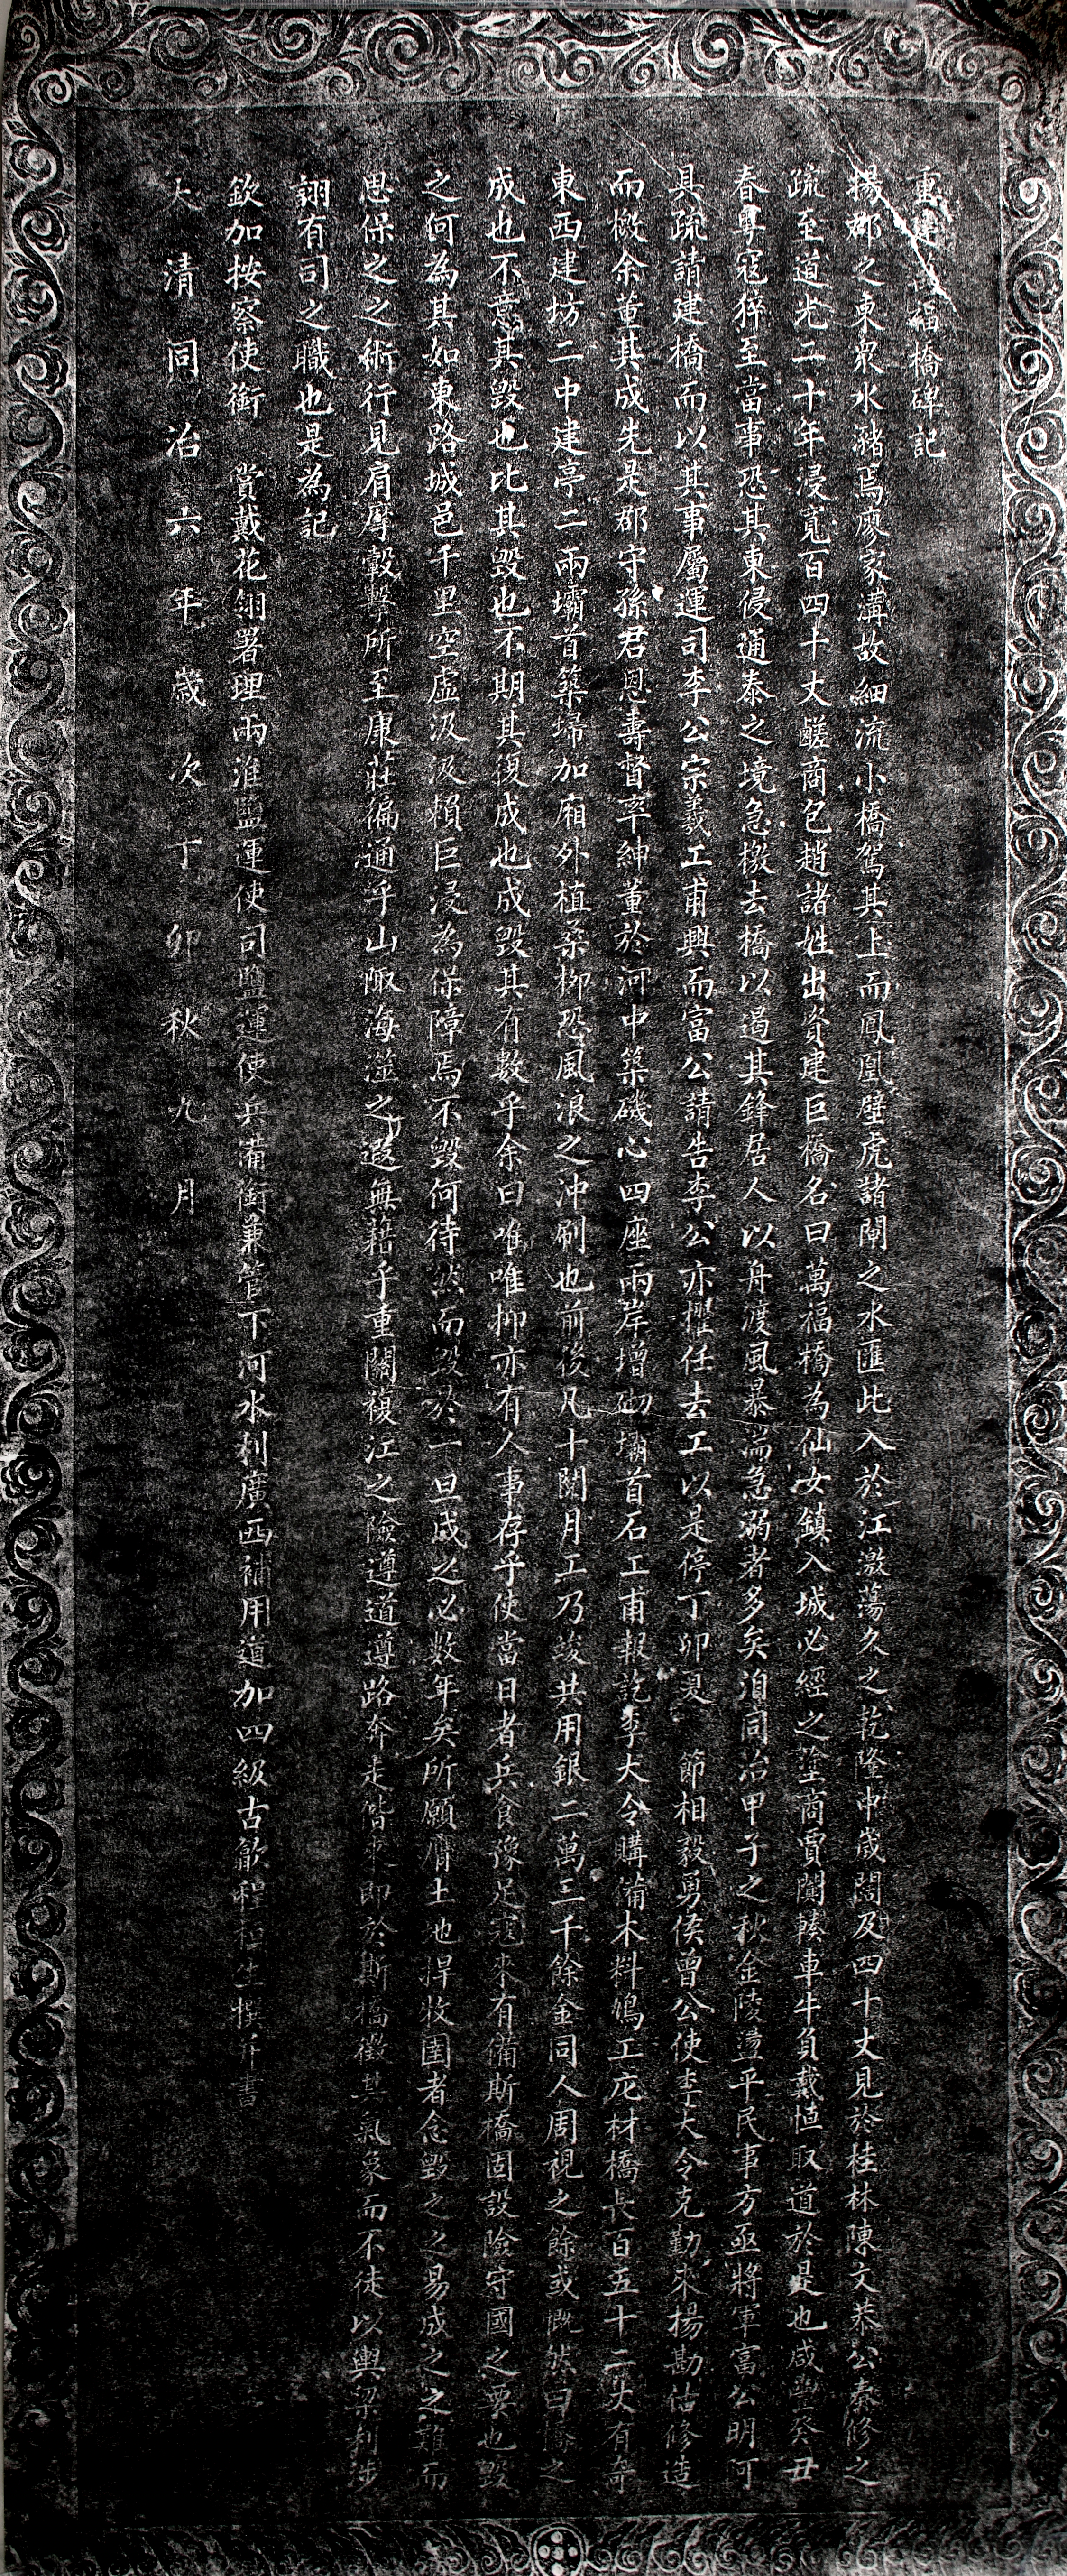 重建萬福橋碑記
揚郡之東眾水瀦焉廖家溝故細流小橋駕其上而鳳凰壁虎諸閘之水匯此入於江激蕩久之乾隆中歲闊及四十丈見於桂林陳文恭公奏修之
疏至道光二十年浸寬百四十丈鹺商包趙諸姓出資建巨橋名曰萬福橋為仙女鎮入城必經之塗商賈闐轃車牛負戴慎取道於是也咸豐癸丑
春粤寇猝至當事恐其東侵通泰之境急檄去橋以遏其鋒居人以舟渡風暴湍急溺者多矣洎同治甲子之秋金陵盪平民事方亟將軍富公明可
具疏請建橋而以其事屬運司李公宗羲工甫興而富公請告李公亦擢任去工以是停丁卯夏 節相毅勇侯曾公使李大令克勤來揚勘估修造
而檄余董其成先是郡守孫君恩壽督率紳董於河中築磯心四座兩岸增砌壩首石工甫報訖李大令購備木料鳩工庀材橋長百五十二丈有奇
東西建坊二中建亭二兩壩首築埽加廂外植桑柳恐風浪之沖刷也前後凡十閱月工乃竣共用銀二萬三千餘金同人周視之餘或慨然曰橋之
成也不意其毀也比其毀也不期其復成也成毀其有數乎余曰唯唯抑亦有人事存乎使當日者兵食豫足寇來有備斯橋固設險守國之要也毀
之何為其如東路城邑千里空虛汲汲賴巨浸為保障焉不毀何待然而毀於一旦成之必數年矣所願膺土地捍牧圉者念毀之之易成之之難而
思保之之術行見肩摩轂擊所至康莊徧通乎山陬海澨之遐無藉乎重關複江之險遵道遵路奔走偕來即於斯橋徵其氣象而不徒以輿梁利涉
詡有司之職也是為記
欽加按察使銜 賞戴花翎署理兩淮鹽運使司鹽運使兵備銜兼管下河水利廣西補用道加四級古歙程桓生撰并書
大清同治六年歲次丁卯秋九月